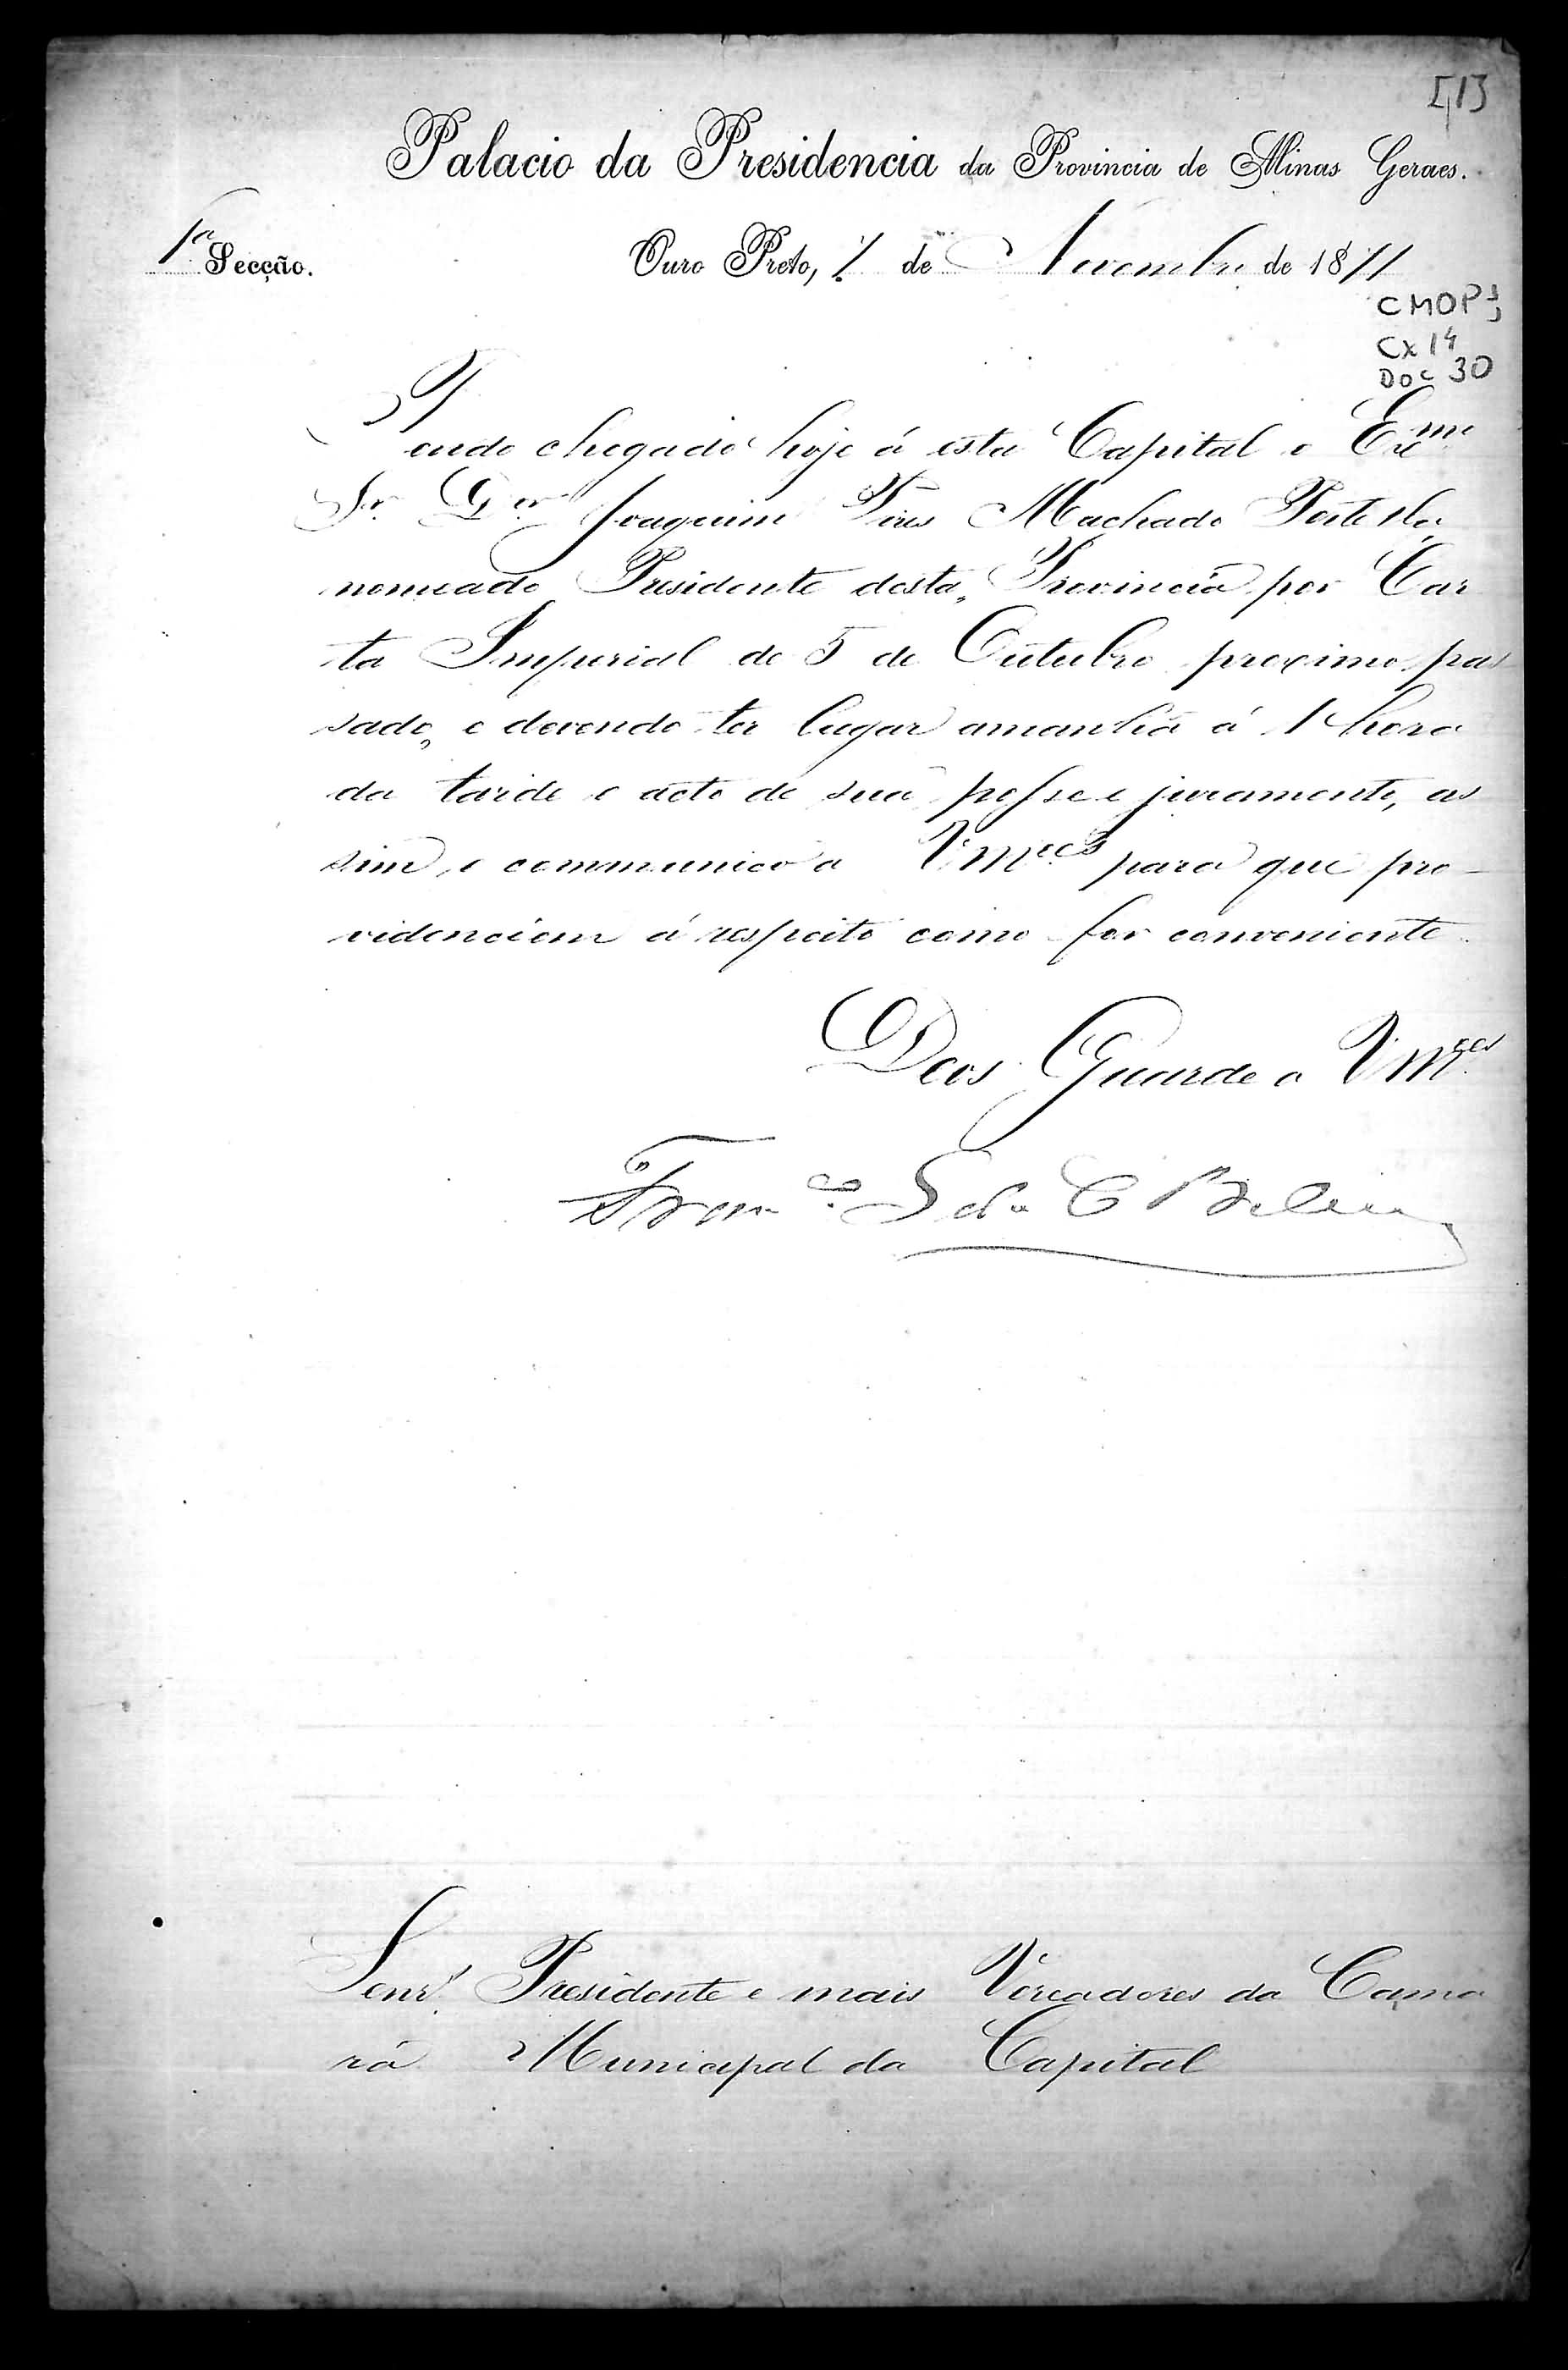 [1]
Palacio da Presidencia da Provincia de Minas Geraes.
1ª Secção. Ouro Preto, 7 de Novembro de 1871
CMOP
Cx 14
Doc 30
Tendo chegado hoje á esta Capital o Exmo
Sr. Dor. Joaquim Pires Machado Portella,
nomeado Presidente desta Provincia por Car
ta Imperial de 5 de Outubro proximo pas
sado, e devendo ter lugar amanhã á 1 hora
da tarde o acto de sua posse e juramento, as
sim o communico a Vmces para que pro-
videnciem á respeito como for conveniente.
Deos Guarde a Vmces
Franco
Senrs. Presidente e mais Vereadores da Cama
ra Municipal da Capital